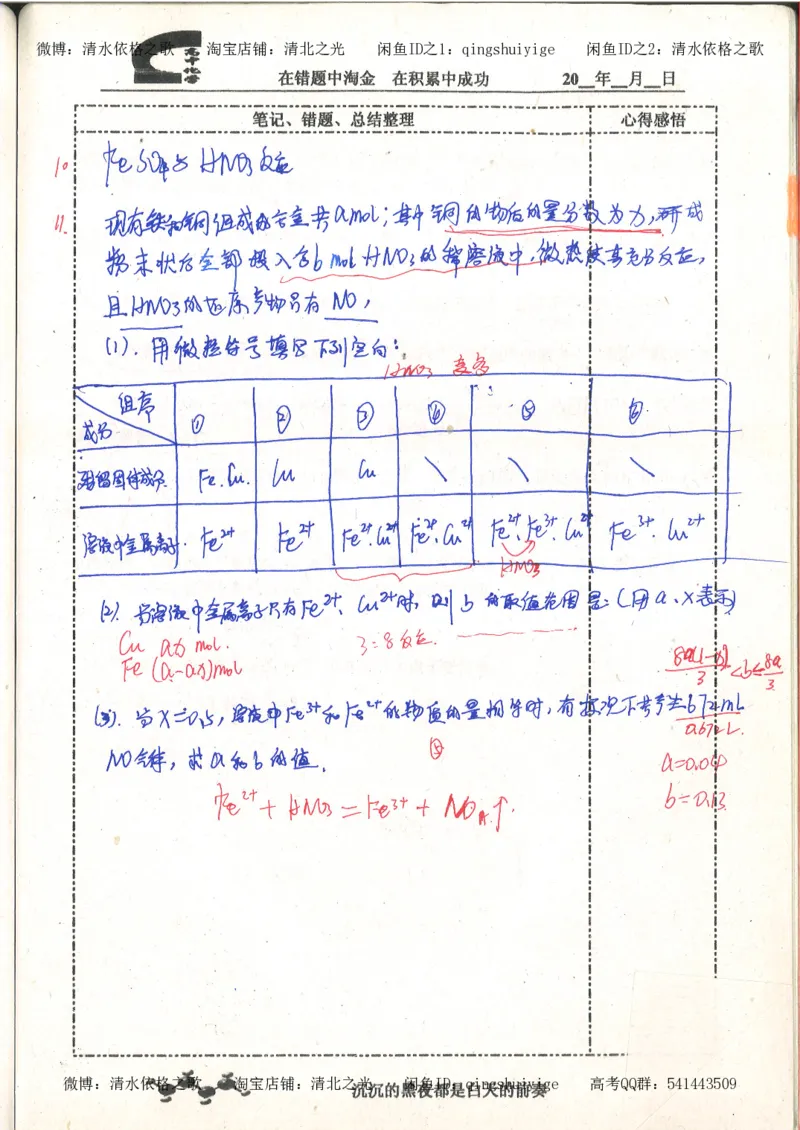 微博：清水依格之歌 淘宝店铺：清北之光 闲鱼ID之1：qingshuiyige 闲鱼ID之2：清水依格之歌
高中化学
在错题中淘金 在积累中成功 20__年__月__日
笔记、错题、总结整理 心得感悟
10 FeSO4与HNO3反应
11. 现有铁和铜组成的合金共amol；其中铜的物质的量分数为x，研成
粉末状后全部投入含b mol HNO3的稀溶液中，微热使其充分反应，
且HNO3的还原产物只有NO，
(1). 用微粒符号填写下列空白：
HNO3 变多
组序 ① ② ③ ④ ⑤ ⑥
成分
残留固体成分 Fe.Cu. Cu Cu \ \ \
溶液中金属离子. Fe2+ Fe2+ Fe2+.Cu2+ Fe2+.Cu2+ Fe2+.Fe3+.Cu2+ Fe3+.Cu2+
HNO3
(2). 当溶液中金属离子只有Fe2+、Cu2+时，则b的取值范围是：(用a、x表示)
Cu ax mol.
3:8反应.
Fe (a-ax)mol
8a(1-x)/3<b≤8a/3
(3). 当x=0.5，溶液中Fe3+和Fe2+的物质的量相等时，有标况下共产生672mL
0.672L.
NO气体，求a和b的值.
⑤
a=0.04
b=0.13
Fe2++HNO3=Fe3++NO↑.
微博：清水依格之歌 淘宝店铺：清北之光 闲鱼ID：qingshuiyige 高考QQ群：541443509
沉沉的黑夜都是白天的前奏